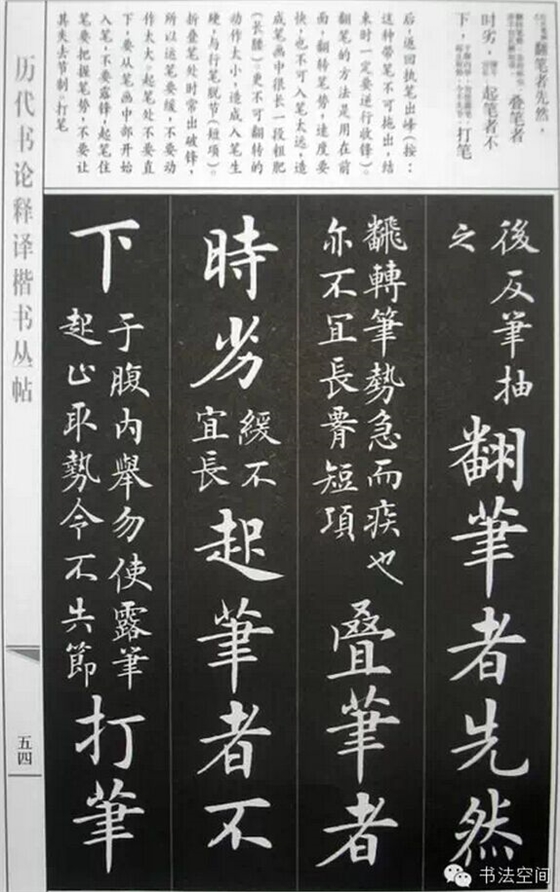 翻笔者先然，
叠笔者
时劣，起笔者不
下，打笔
后，返回执笔出峰（按：
这种带笔不可拖出，结
束时一定要逆行收锋）。
翻笔的方法是用在前
面，翻转笔势，速度要
快，也不可入笔太远，造
成笔画中很长一段粗肥
（长腰）。更不可翻转的
动作太小，造成入笔生
硬，与行笔脱节（短项）。
折叠笔处时常出破锋，
所以运笔要缓，不要动
作太大。起笔处不要直
下，要从笔画中部开始
入笔，不要露锋，起笔住
笔要把握笔势，不要让
其失去节制。打笔
後反筆抽
之
翻筆者先然
飜轉筆勢急而疾也
亦不宜長腰短項
叠筆者
時劣
緩不
宜長
起筆者不
下
于腹内舉勿使露筆
起止取勢令不失節
打筆
历代书论释译楷书丛帖
五四
书法空间